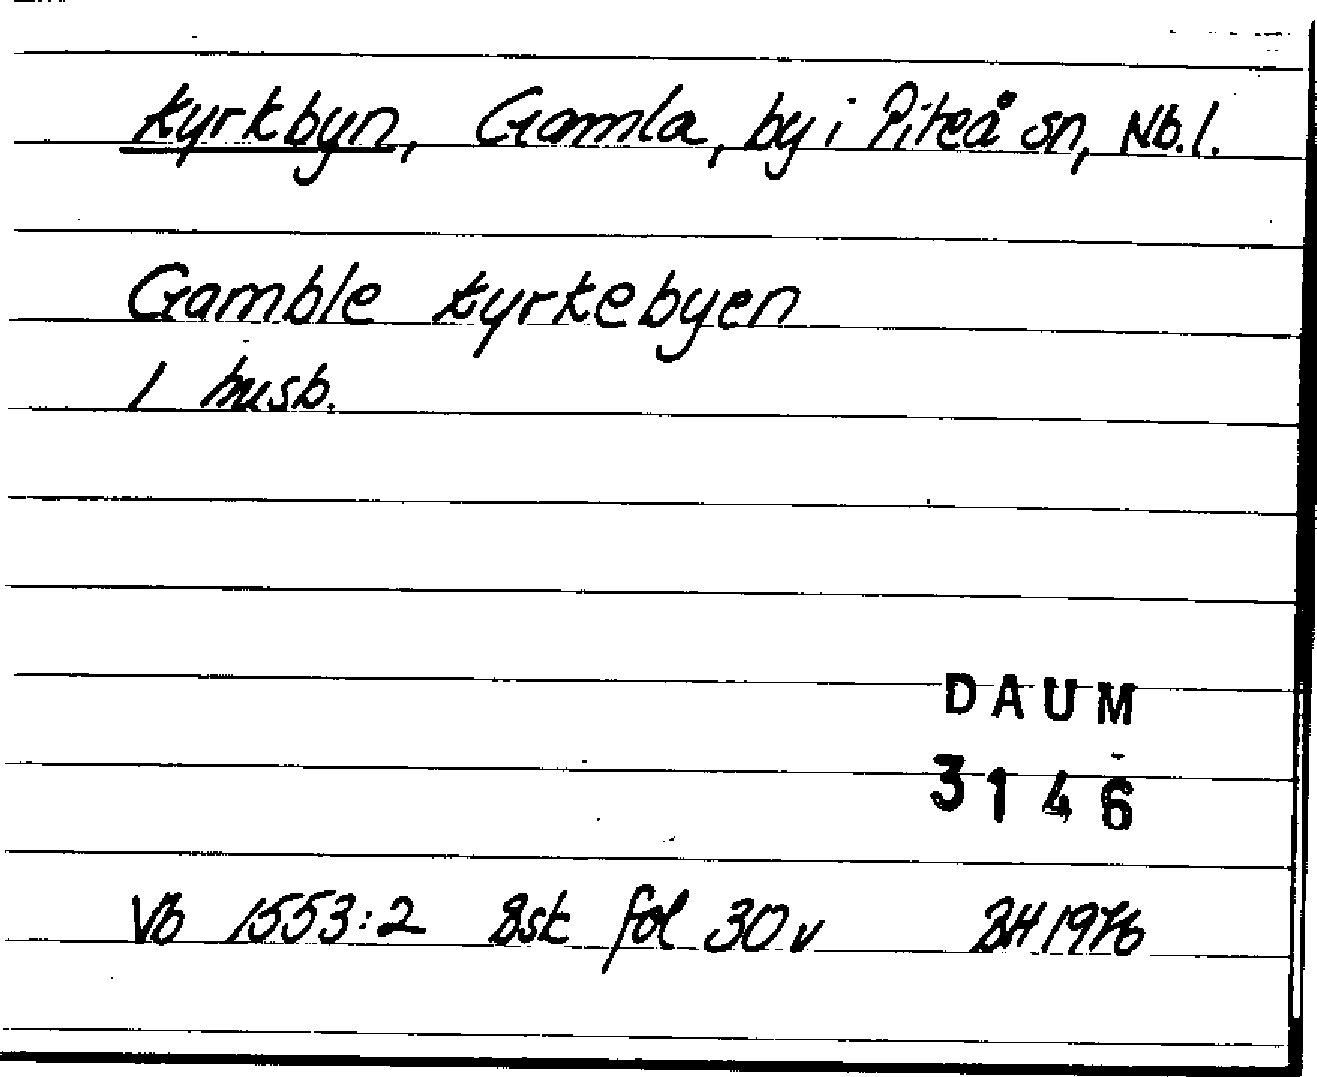 Kyrkbyn, Gamla, by i Piteå sn, Nb.l.
Gamble kyrkebyen
1 husb.
DAUM
3146
Vb 1553:2 Bsk fol 30v BH 1976